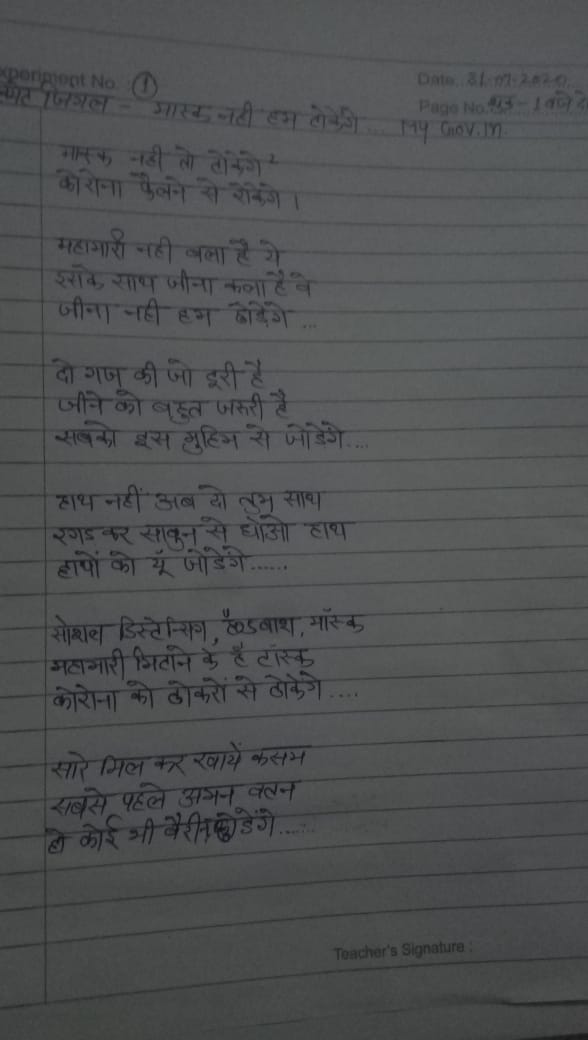 Experiment No. 1
Date. 31-07-2020
जिंगल - मास्क नही हम टोकेंगे... My Gov.in
Page No.
मास्क नही तो टोकेंगे २
कोरोना फैलने से रोकेंगे।
महामारी नही बला है ये
इसके साथ जीना कला है ये
जीना नही हम छोडेंगे ...
दो गज की जो दूरी है
जीने को बहुत जरूरी है
सबको इस मुहिम से जोडेंगे....
हाथ नहीं अब दो तुम साथ
रगड कर साबुन से धोओ हाथ
हाथों को यूँ जोडेंगे......
सोशल डिस्टेन्सिंग, हैंडवाश, मॉस्क
महामारी मिटाने के है टॉस्क
कोरोना को ठोकरों से ठोकेंगे....
सारे मिल कर खायें कसम
सबसे पहले अमन वतन
हो कोई भी बैरी छोडेंगे......
Teacher's Signature :